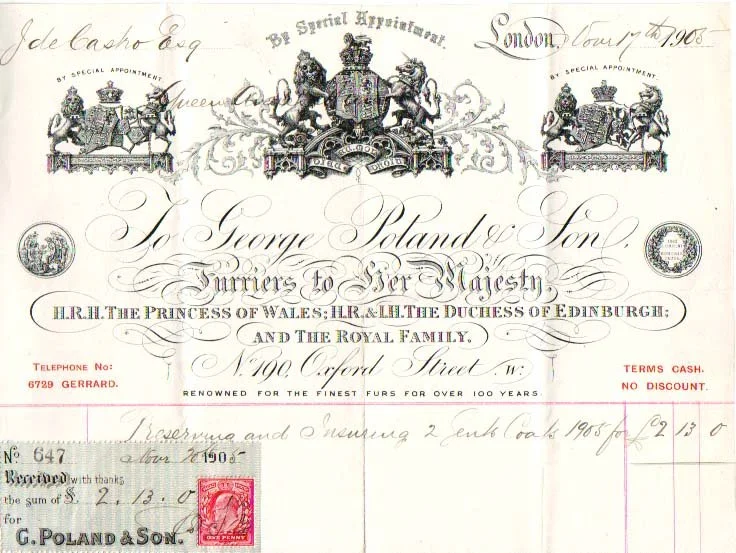 By Special Appointment.
J de Castro Esq
London, Novr 17th 1905
BY SPECIAL APPOINTMENT.
BY SPECIAL APPOINTMENT.
Queen
DIEU ET MON DROIT
To George Poland & Son,
Furriers to Her Majesty,
H.R.H. THE PRINCESS OF WALES; H.R. & I.H. THE DUCHESS OF EDINBURGH;
AND THE ROYAL FAMILY.
No. 190, Oxford Street W.
TELEPHONE NO:
6729 GERRARD.
TERMS CASH.
NO DISCOUNT.
RENOWNED FOR THE FINEST FURS FOR OVER 100 YEARS.
Preserving and Insuring 2 Gents Coats 1905 for £2 13 0
No. 647
Novr 1905
Received with thanks
the sum of £ 2. 13. 0
for
G. POLAND & SON.
ONE PENNY